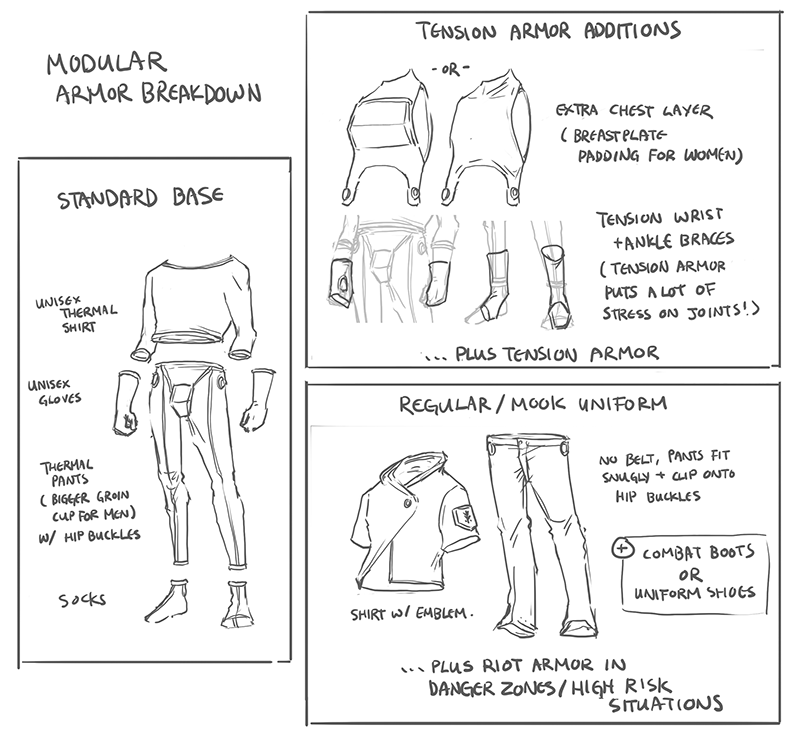 MODULAR
ARMOR BREAKDOWN
STANDARD BASE
UNISEX
THERMAL
SHIRT
UNISEX
GLOVES
THERMAL
PANTS
(BIGGER GROIN
CUP FOR MEN)
W/ HIP BUCKLES
SOCKS
TENSION ARMOR ADDITIONS
-OR-
EXTRA CHEST LAYER
(BREASTPLATE
PADDING FOR WOMEN)
TENSION WRIST
+ ANKLE BRACES
(TENSION ARMOR
PUTS A LOT OF
STRESS ON JOINTS!)
...PLUS TENSION ARMOR
REGULAR/MOOK UNIFORM
NO BELT, PANTS FIT
SNUGLY + CLIP ONTO
HIP BUCKLES
+ COMBAT BOOTS
OR
UNIFORM SHOES
SHIRT W/ EMBLEM.
...PLUS RIOT ARMOR IN
DANGER ZONES/HIGH RISK
SITUATIONS